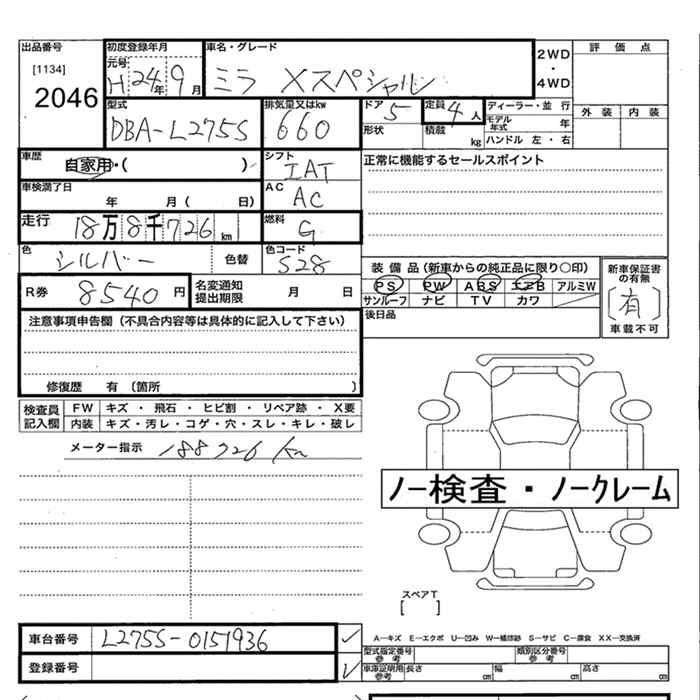 出品番号
[1134]
2046
初度登録年月
元号
H 24年 9月
車名・グレード
ミラ Xスペシャル
2WD
・
4WD
評 価 点
外 装 内 装
型式
DBA-L275S
排気量又はkw
660
ドア 5
形状
定員 4人
積載 kg
ディーラー・並 行
モデル年式 年
ハンドル 左・右
車歴
自家用・( )
シフト
IAT
正常に機能するセールスポイント
車検満了日
年 月( 日)
AC
AC
走行 18万8千726 km
燃料
G
色 シルバー 色替
色コード
S28
R券 8540 円
名変通知
提出期限 月 日
装 備 品(新車からの純正品に限り○印)
PS PW ABS エアB アルミW
サンルーフ ナビ TV カワ
新車保証書
の有無
(有)
車載不可
後日品
注意事項申告欄(不具合内容等は具体的に記入して下さい)
修復歴 有(箇所 )
検査員
記入欄
FW キズ・飛石・ヒビ割・リペア跡・X要
内装 キズ・汚レ・コゲ・穴・スレ・キレ・破レ
メーター指示 188726 Km
ノー検査・ノークレーム
スペアT
[ ]
車台番号 L275S-0157936
登録番号
A―キズ E―エクボ U―凹み W―補修跡 S―サビ C―腐食 XX―交換済
型式指定番号
参 考
類別区分番号
参 考
車庫証明用
参 考
長さ cm 幅 cm 高さ cm